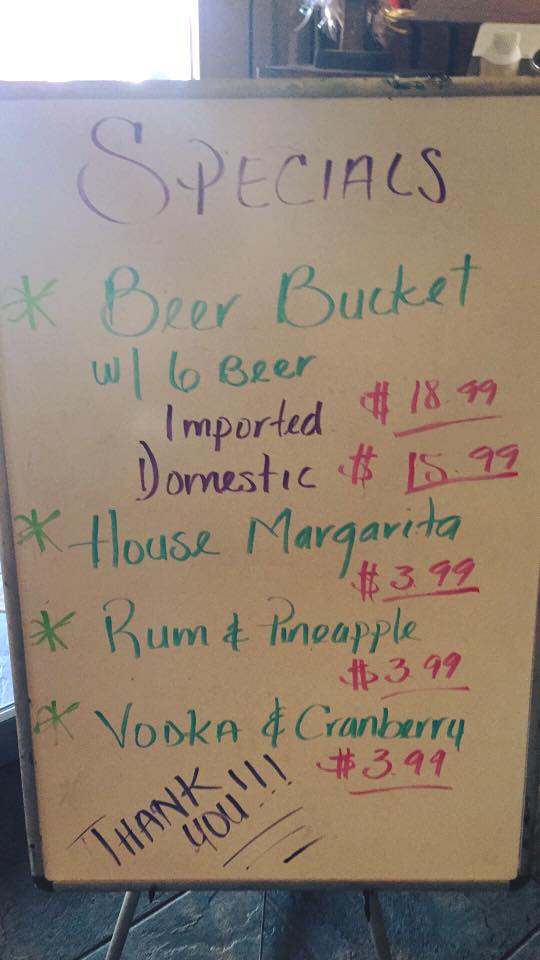 SPECIALS
* Beer Bucket
w/ 6 Beer
Imported $ 18.99
Domestic $ 15.99
* House Margarita
$ 3.99
* Rum & Pineapple
$ 3.99
* Vodka & Cranberry
$ 3.99
THANK
YOU!!!